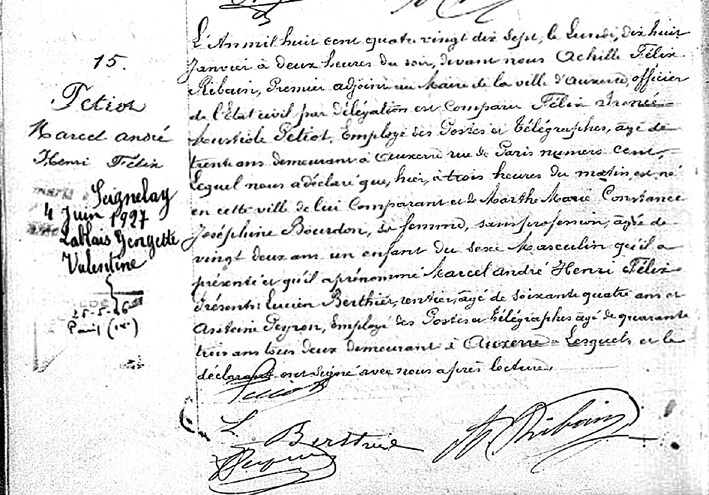 15.
Petiot
Marcel André
Henri Félix
Seignelay
4 Juin 1927
Lablais Georgette
Valentine
25-5-46
Paris
L'An mil huit cent quatre vingt dix sept, le Lundi, dix huit
Janvier à deux heures du soir, devant nous Achille Félix
Ribain, Premier adjoint au Maire de la ville d'Auxerre, officier
de l'État civil par délégation est Comparu Félix Irénée
Mustiole Petiot, Employé des Postes et Télégraphes, âgé de
trente ans demeurant à Auxerre rue de Paris numéro cent,
Lequel nous a déclaré que, hier, à trois heures du matin, est né
en cette ville de lui Comparant et de Marthe Marie Constance
Joséphine Bourdon, sa femme, sans profession, âgée de
vingt deux ans un enfant du sexe Masculin qu'il a
présenté et qu'il a prénommé Marcel André Henri Félix
Présents: Lucien Berthier, rentier, âgé de soixante quatre ans et
Antoine Peyron, Employé des Postes et Télégraphes âgé de quarante
trois ans tous deux demeurant à Auxerre - Lesquels et le
déclarant ont signé avec nous après lecture.
Petiot
L Berthier
A. Ribain